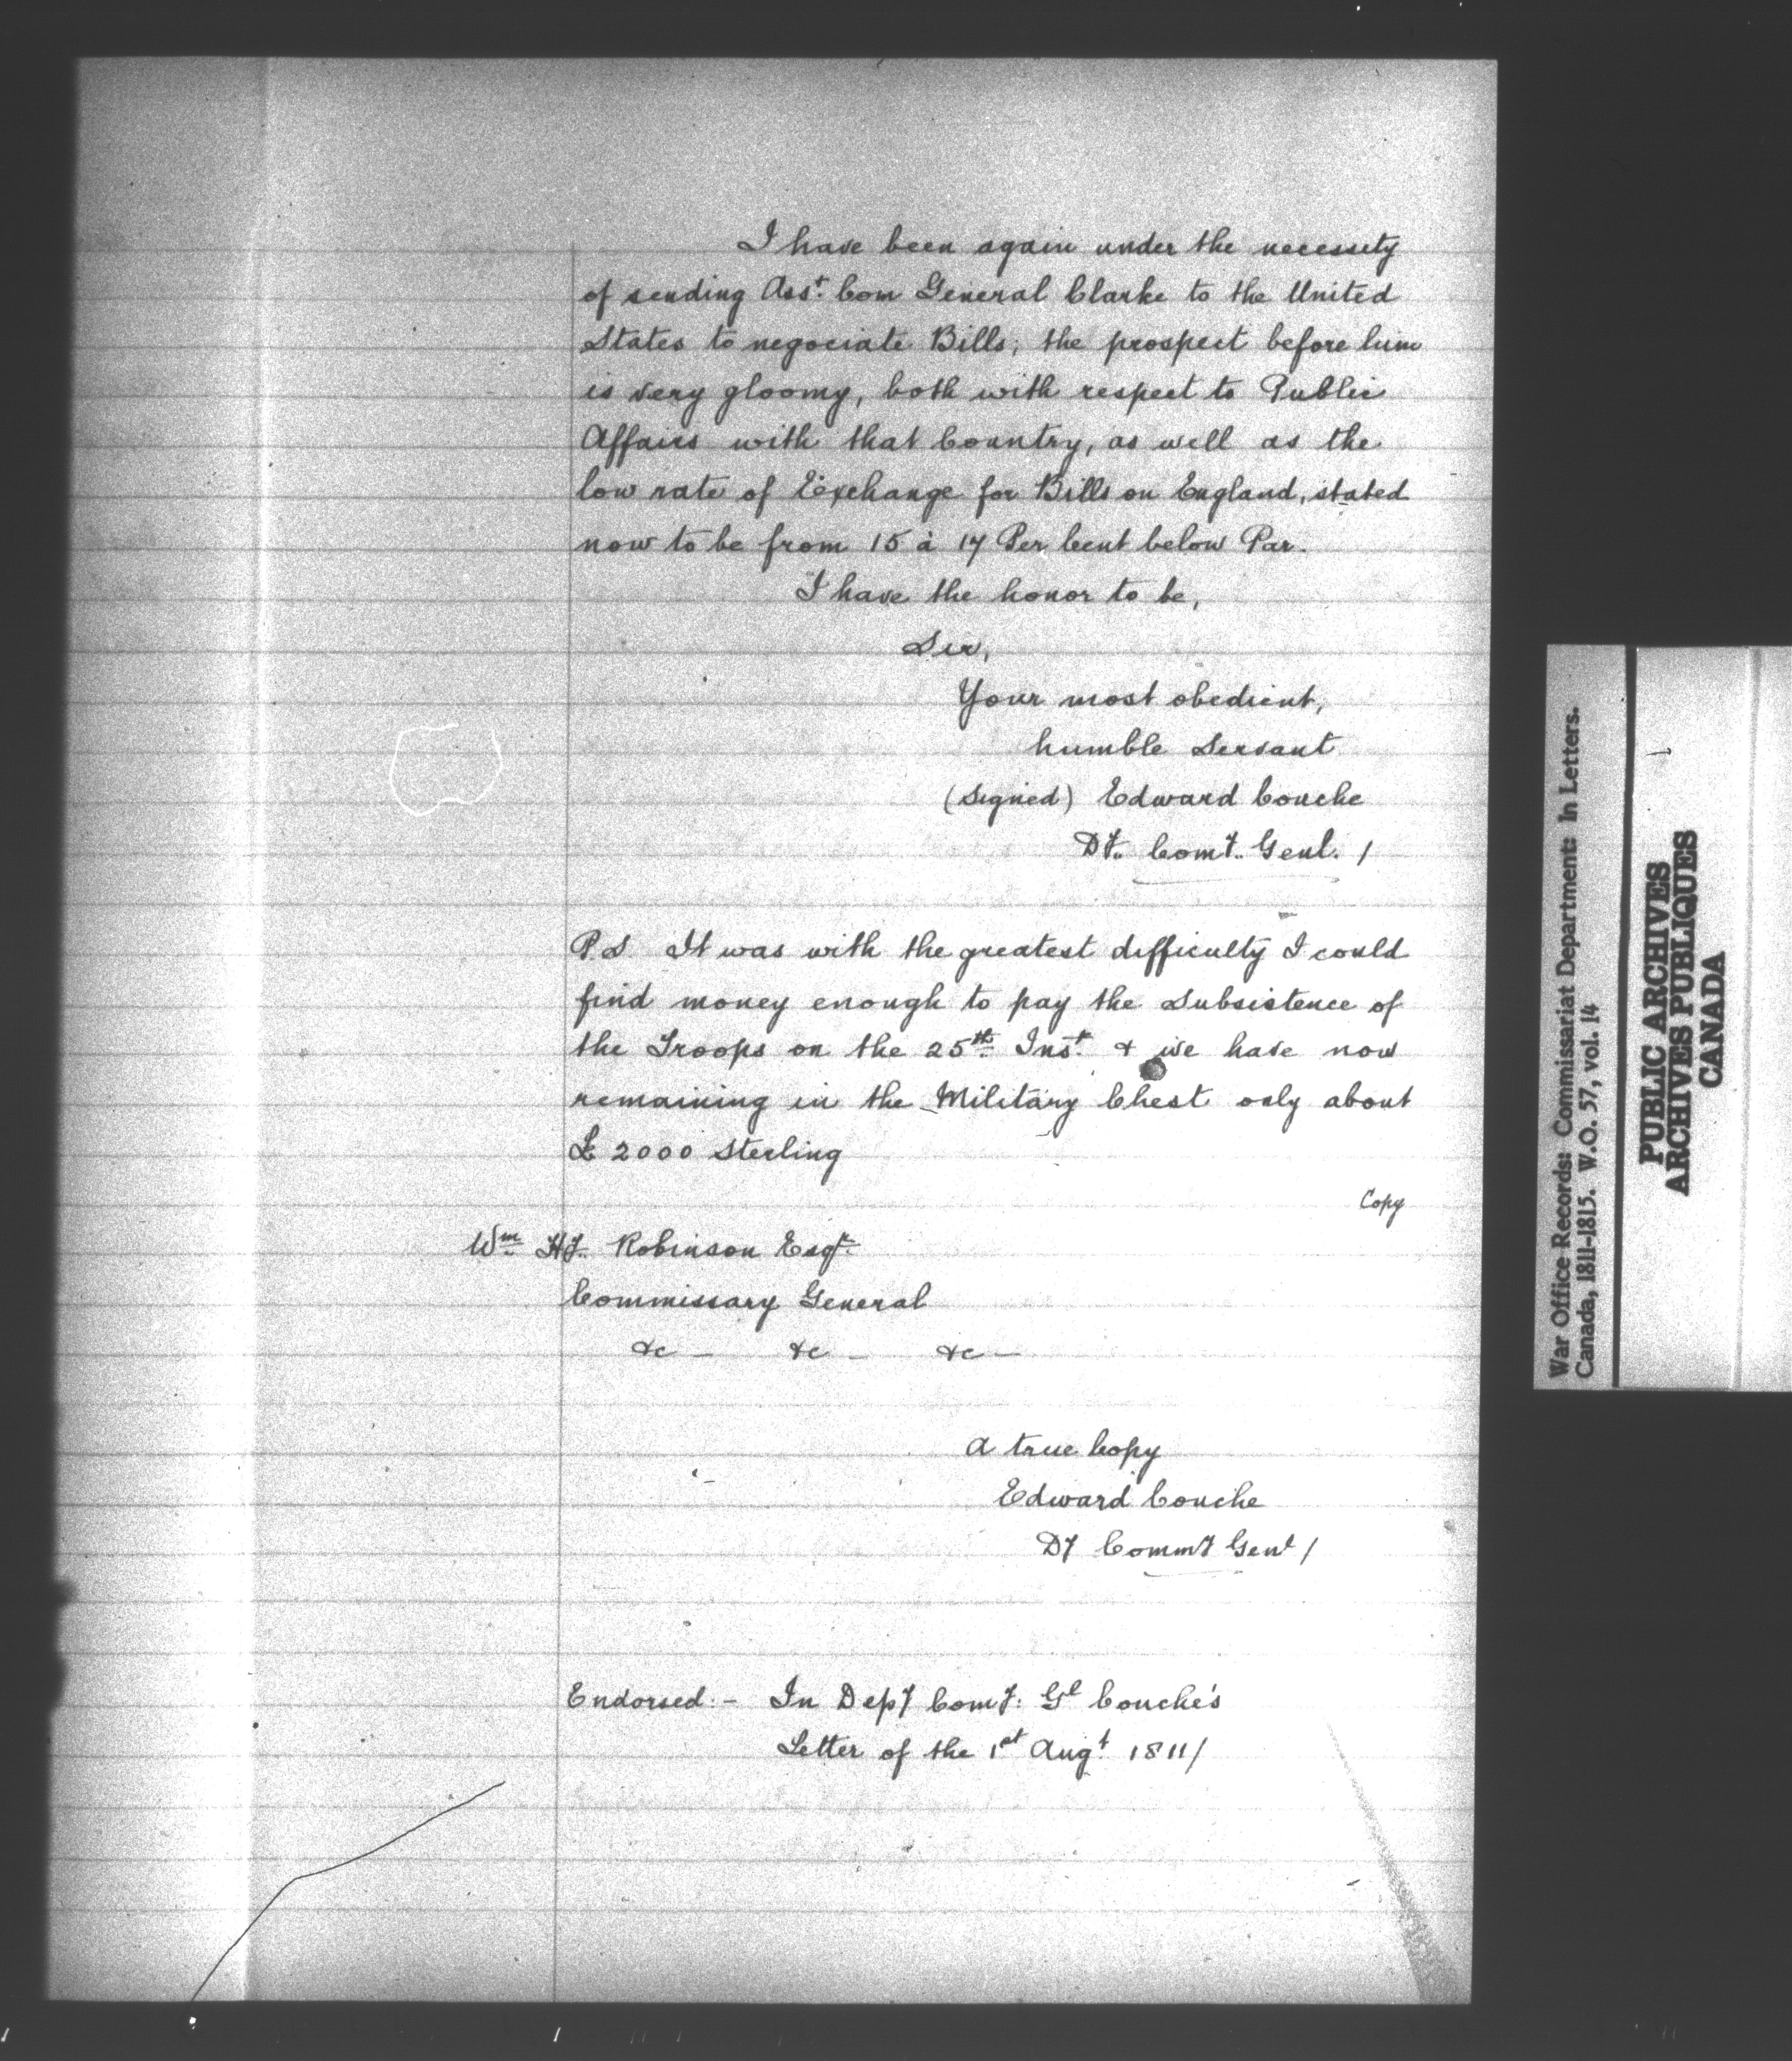 I have been again under the necessity
of sending Asst. Com General Clarke to the United
States to negociate Bills; the prospect before him
is very gloomy, both with respect to Public
Affairs with that Country, as well as the
low rate of Exchange for Bills on England, stated
now to be from 15 à 17 Per Cent below Par.
I have the honor to be,
Sir,
Your most obedient,
humble Servant
(Signed) Edward Couche
Dy. Comy. Genl. /
P.S. It was with the greatest difficulty I could
find money enough to pay the Subsistence of
the Troops on the 25th Inst. & we have now
remaining in the Military Chest only about
£ 2000 Sterling
Copy
Wm Hy. Robinson Esqr.
Commissary General
&c - &c - &c -
A true Copy
Edward Couche
Dy Commy Genl /
Endorsed:- In Depy Comy. Gl Couche's
Letter of the 1st Augt. 1811/
War Office Records: Commissariat Department: In Letters.
Canada, 1811-1815. W.O. 57, vol. 14
PUBLIC ARCHIVES
ARCHIVES PUBLIQUES
CANADA